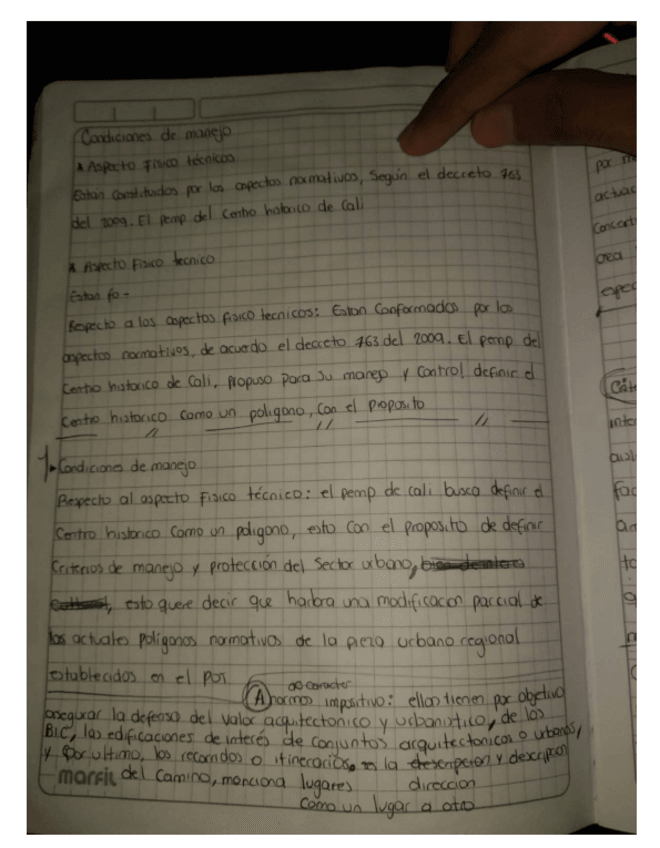 Condiciones de manejo
* Aspecto Fisico técnicos
Estan Constituidos por los aspectos normativos, Según el decreto 763
del 2009. El pemp del Centro historico de Cali
* Aspecto Fisico tecnico
Estan fo-
Respecto a los aspectos fisico tecnicos: Estan Conformados por los
aspectos normativos, de acuerdo el decreto 763 del 2009. El pemp del
Centro historico de Cali, propuso para su manejo y control definir el
Centro historico como un poligono, con el proposito
1. Condiciones de manejo
Respecto al aspecto Fisico técnico: el pemp de cali busca definir el
Centro historico Como un poligono, esto con el proposito de definir
Criterios de manejo y protección del Sector urbano,
, esto quere decir que harbra una modificacion parcial de
los actuales polígonos normativos de la pieza urbano regional
establecidos en el POT
de caracter
A normas impositivo: ellos tienen por objetivo
asegurar la defensa del valor aquitectonico y urbanistico, de los
BIC, las edificaciones de interés de conjuntos arquitectonicos o urbanos,
y por ultimo, los recorridos o itinerarios. la descripcion y descripcion
del camino, menciona lugares direccion
como un lugar a otro
marfil
por
actuac
Concert
crea
espec
inter
fac
an
to